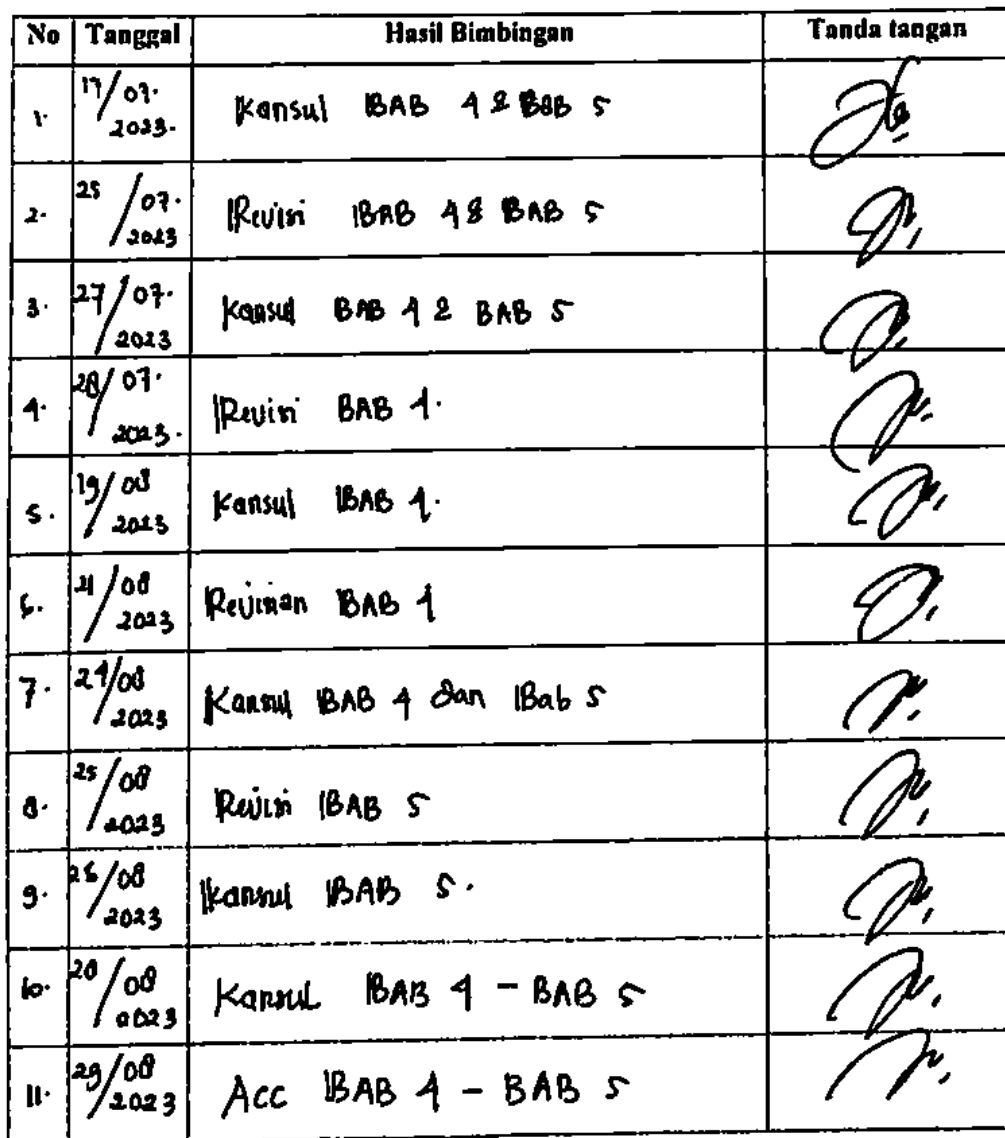 No Tanggal Hasil Bimbingan Tanda tangan
1. 17/07. 2023. Kansul BAB 4 & BAB 5
2. 25/07. 2023 Revisi BAB 4 & BAB 5
3. 27/07. 2023 Kansul BAB 4 & BAB 5
4. 28/07. 2023. Revisi BAB 4.
5. 19/08 2023 Kansul BAB 4.
6. 21/08 2023 Revisian BAB 4
7. 24/08 2023 Kansul BAB 4 dan Bab 5
8. 25/08 2023 Revisi BAB 5
9. 26/08 2023 Kansul BAB 5.
10. 28/08 2023 Kansul BAB 4 - BAB 5
11. 29/08 2023 Acc BAB 4 - BAB 5